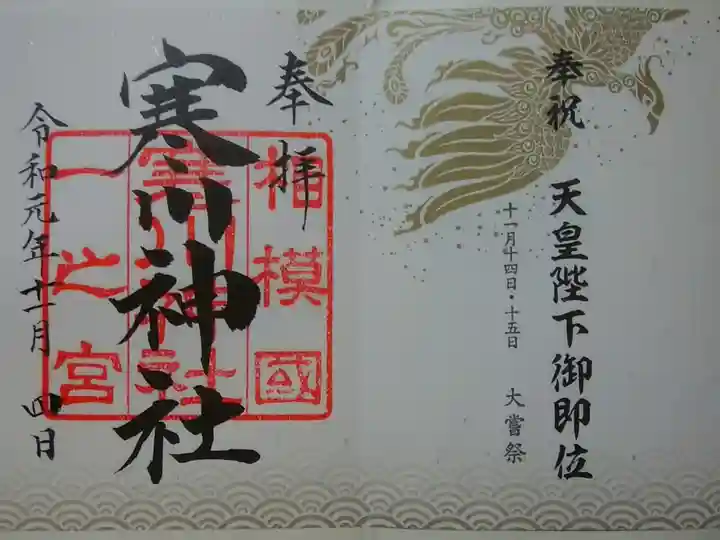 奉祝
天皇陛下御即位
十一月十四日・十五日 大嘗祭
奉拝
相模國
寒川神社
寒川神社
一之宮
令和元年十一月 四日